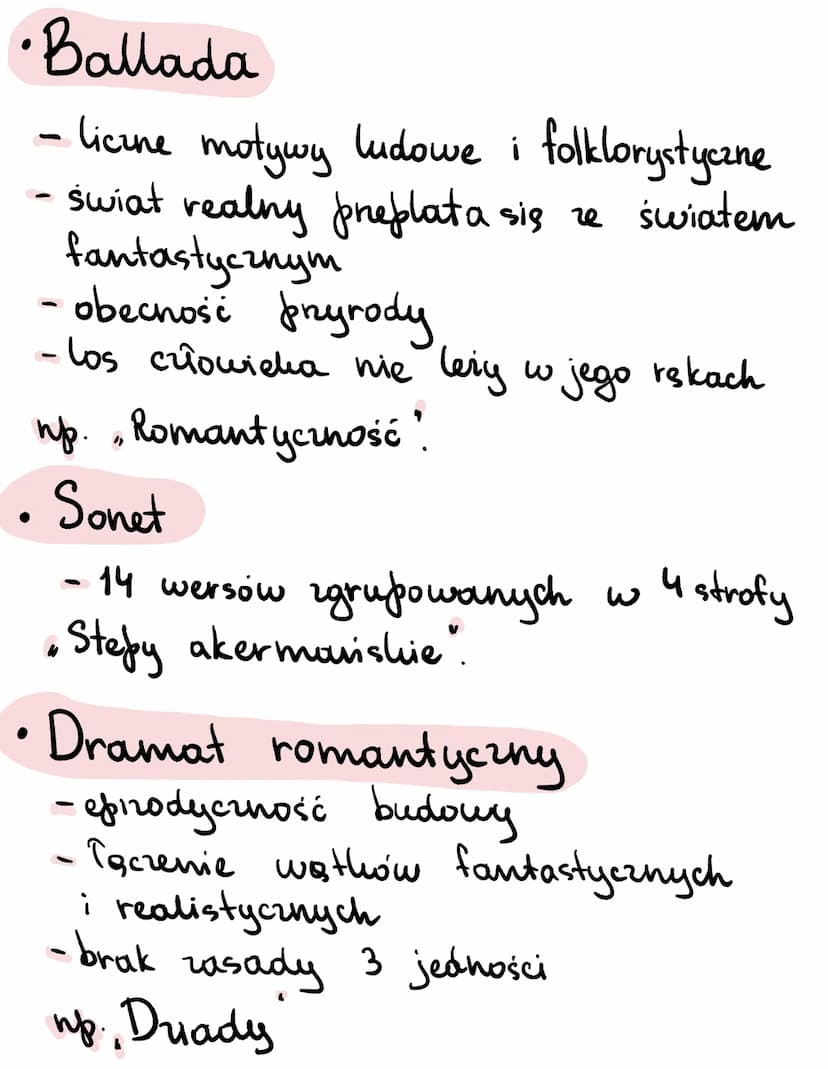 • Ballada
- liczne motywy ludowe i folklorystyczne
- świat realny przeplata się ze światem
fantastycznym
- obecność przyrody
- los człowieka nie leży w jego rękach
np. „Romantyczność”.
• Sonet
- 14 wersów zgrupowanych w 4 strofy
„Stepy akermańskie”.
• Dramat romantyczny
- epizodyczność budowy
- łączenie wątków fantastycznych
i realistycznych
- brak zasady 3 jedności
np. „Dziady”